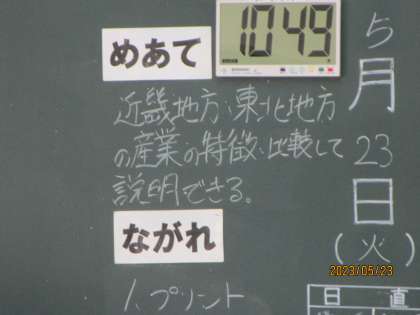 めあて
10:49
近畿地方、東北地方
の産業の特徴を比較して
説明できる。
ながれ
1. プリント
5
月
23
日
(火)
2023/05/23
日 直